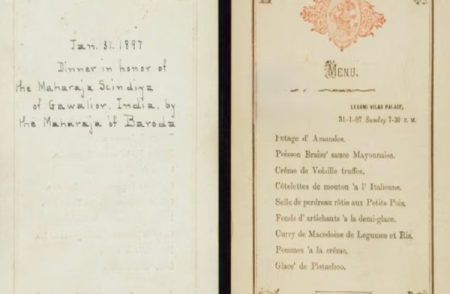 Jan. 31. 1897
Dinner in honor of
the Maharaja Scindiya
of Gawalior, India, by
the Maharaja of Baroda
MENU.
LUXUMI VILAS PALACE,
31-1-97 Sunday 7-30 P. M.
Potage d' Amandes.
Poisson Braise' sauce Mayonnaise.
Crême de Volaille truffes.
Côtelettes de mouton 'a l' Italienne.
Selle de perdreau rôtie aux Petits Pois.
Fonds d' artichauts 'a la demi-glace.
Curry de Macedoine de Legumes et Ris.
Pommes 'a la crême.
Glace' de Pistachoo.